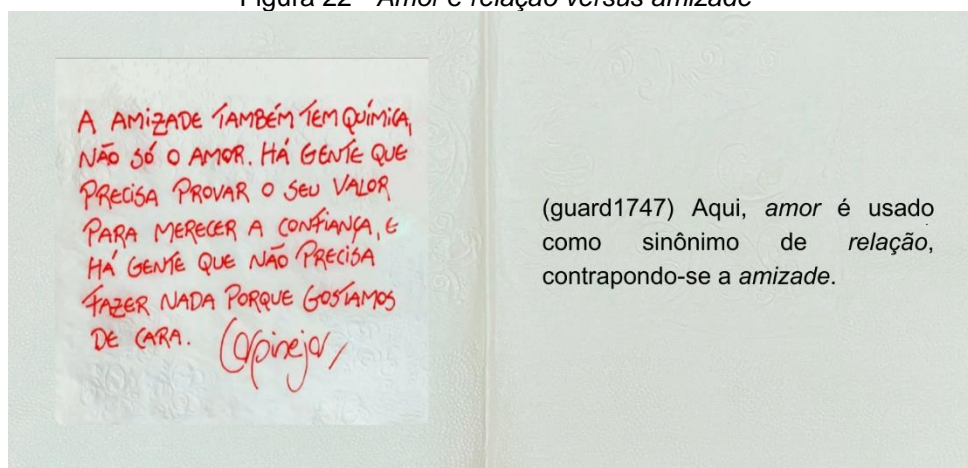 Figura 22 - Amor e relação versus amizade
A AMIZADE TAMBÉM TEM QUÍMICA,
NÃO SÓ O AMOR. HÁ GENTE QUE
PRECISA PROVAR O SEU VALOR
PARA MERECER A CONFIANÇA, E
HÁ GENTE QUE NÃO PRECISA
FAZER NADA PORQUE GOSTAMOS
DE CARA. Carpinejar
(guard1747) Aqui, amor é usado
como sinônimo de relação,
contrapondo-se a amizade.